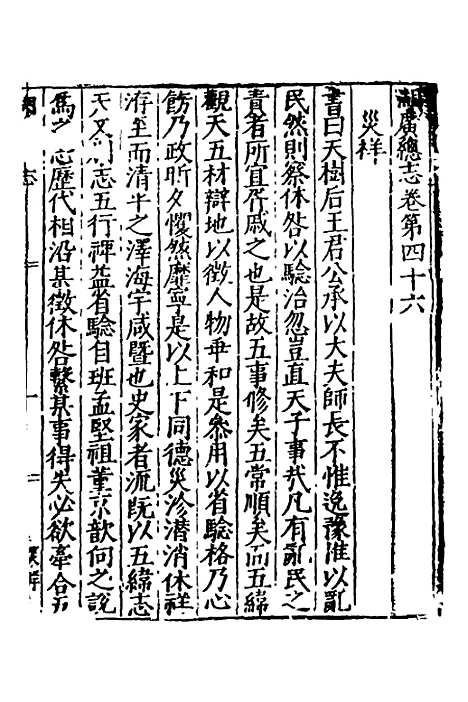 湖廣總志卷第四十六
災祥
書曰天樹后王君公承以大夫師長不惟逸豫惟以亂
民然則察休咎以驗治忽豈直天子事㢤凡有亂民之
責者所宜脊戚之也是故五事修矣五常順矣而五緯
觀天五材辯地以徵人物乖和是叅用以省驗格乃心
飭乃政昕夕懼然靡寧是以上下同德災沴潛消休祥
洊至而清平之澤海宇咸曁也史家者流既以五緯志
天文 志五行禆益省驗自班孟堅祖董京歆向之說
爲之志歷代相沿某徵休咎繫某事得失必欲牽合五
志
災祥